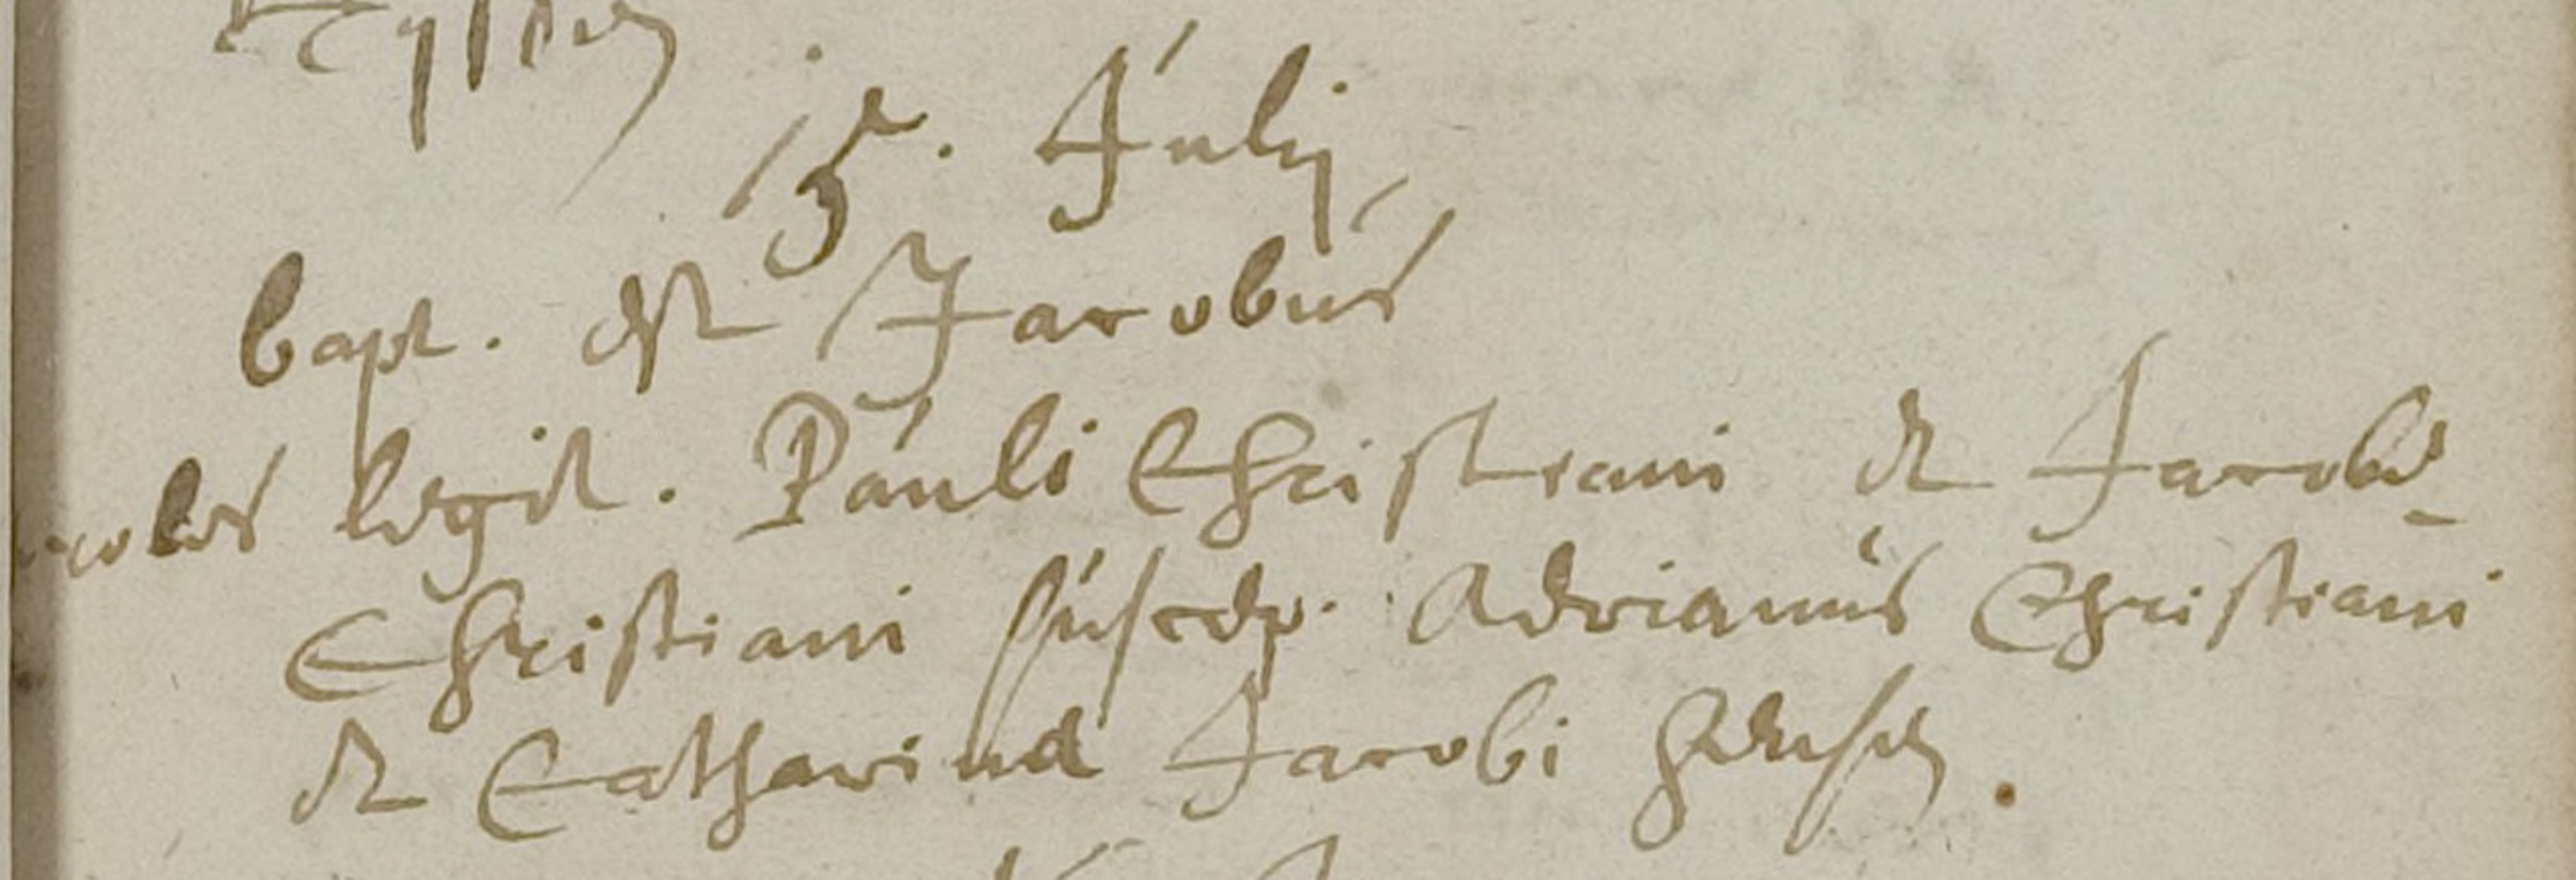 15. Julij
bapt. est Jacobus
proles legit. Pauli Christiani et Jacobae
Christiani suscep. Adrianus Christiani
et Catharina Jacobi